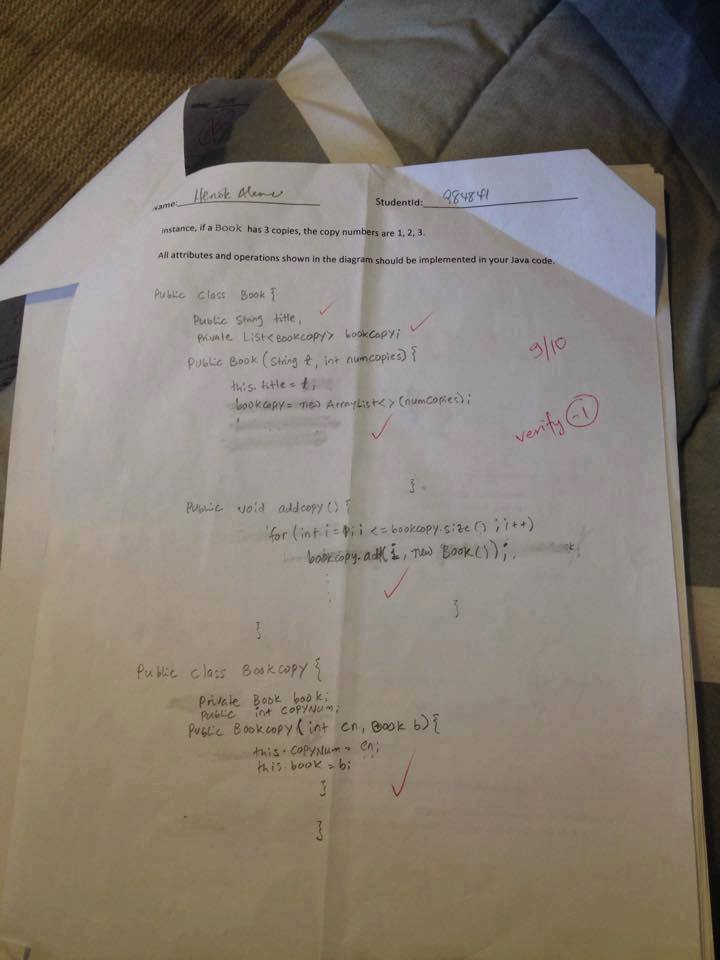 Name: Henok
StudentId: 984841
instance, if a Book has 3 copies, the copy numbers are 1, 2, 3.
All attributes and operations shown in the diagram should be implemented in your Java code.
Public class Book {
Public String title,
Private List<Bookcopy> bookcopy;
9/10
Public Book (String t, int numcopies) {
this.title = t;
bookcopy = new ArrayList<> (numcopies);
verify -1
}
Public void addcopy () {
for (int i = 1; i <= bookcopy.size () ; i++)
bookcopy.add(i, new Book());
}
}
Public class Bookcopy {
Private Book book;
Public int copyNum;
Public Bookcopy (int cn, Book b) {
this.copyNum = cn;
this.book = b;
}
}